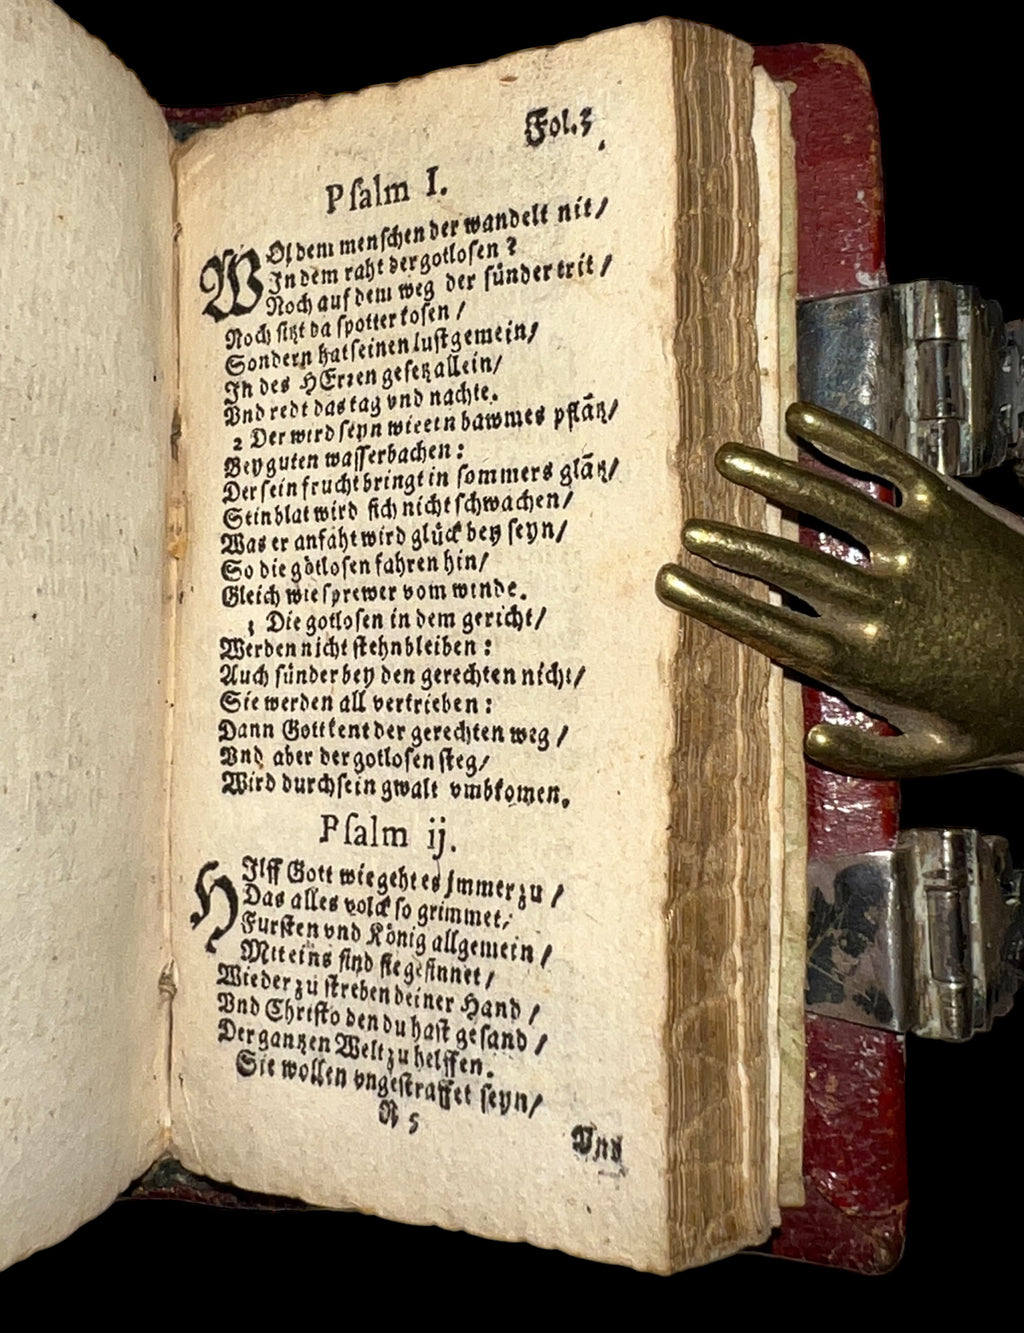 Fol.3
Pſalm I.
WOl dem menſchen der wandelt nit/
In dem raht der gotloſen?
Noch auf dem weg der ſünder trit/
Noch ſitzt da ſpotter koſen/
Sondern hat ſeinen luſt gemein/
In des HErren geſetz allein/
Vnd redt das tag vnd nachte.
2 Der wird ſeyn wie ein bawmes pflātz/
Bey guten waſſerbachen:
Der ſein frucht bringt in ſommers glātz/
Sein blat wird ſich nicht ſchwachen/
Was er anfäht wird glück bey ſeyn/
So die götloſen fahren hin/
Gleich wie ſprewer vom winde.
3 Die gotloſen in dem gericht/
Werden nicht ſtehn bleiben:
Auch ſünder bey den gerechten nicht/
Sie werden all vertrieben:
Dann Gott kent der gerechten weg/
Vnd aber der gotloſen ſteg/
Wird durch ſein gwalt vmbkomen.
Pſalm ij.
HIlff Gott wie geht es immer zu/
Das alles volck ſo grimmet/
Furſten vnd König allgemein/
Mit eins ſind ſie geſinnet/
Wieder zu ſtreben deiner Hand/
Vnd Chriſto den du haſt geſand/
Der gantzen Welt zu helffen.
Sie wollen vngeſtraffet ſeyn/
R 5
Vnd